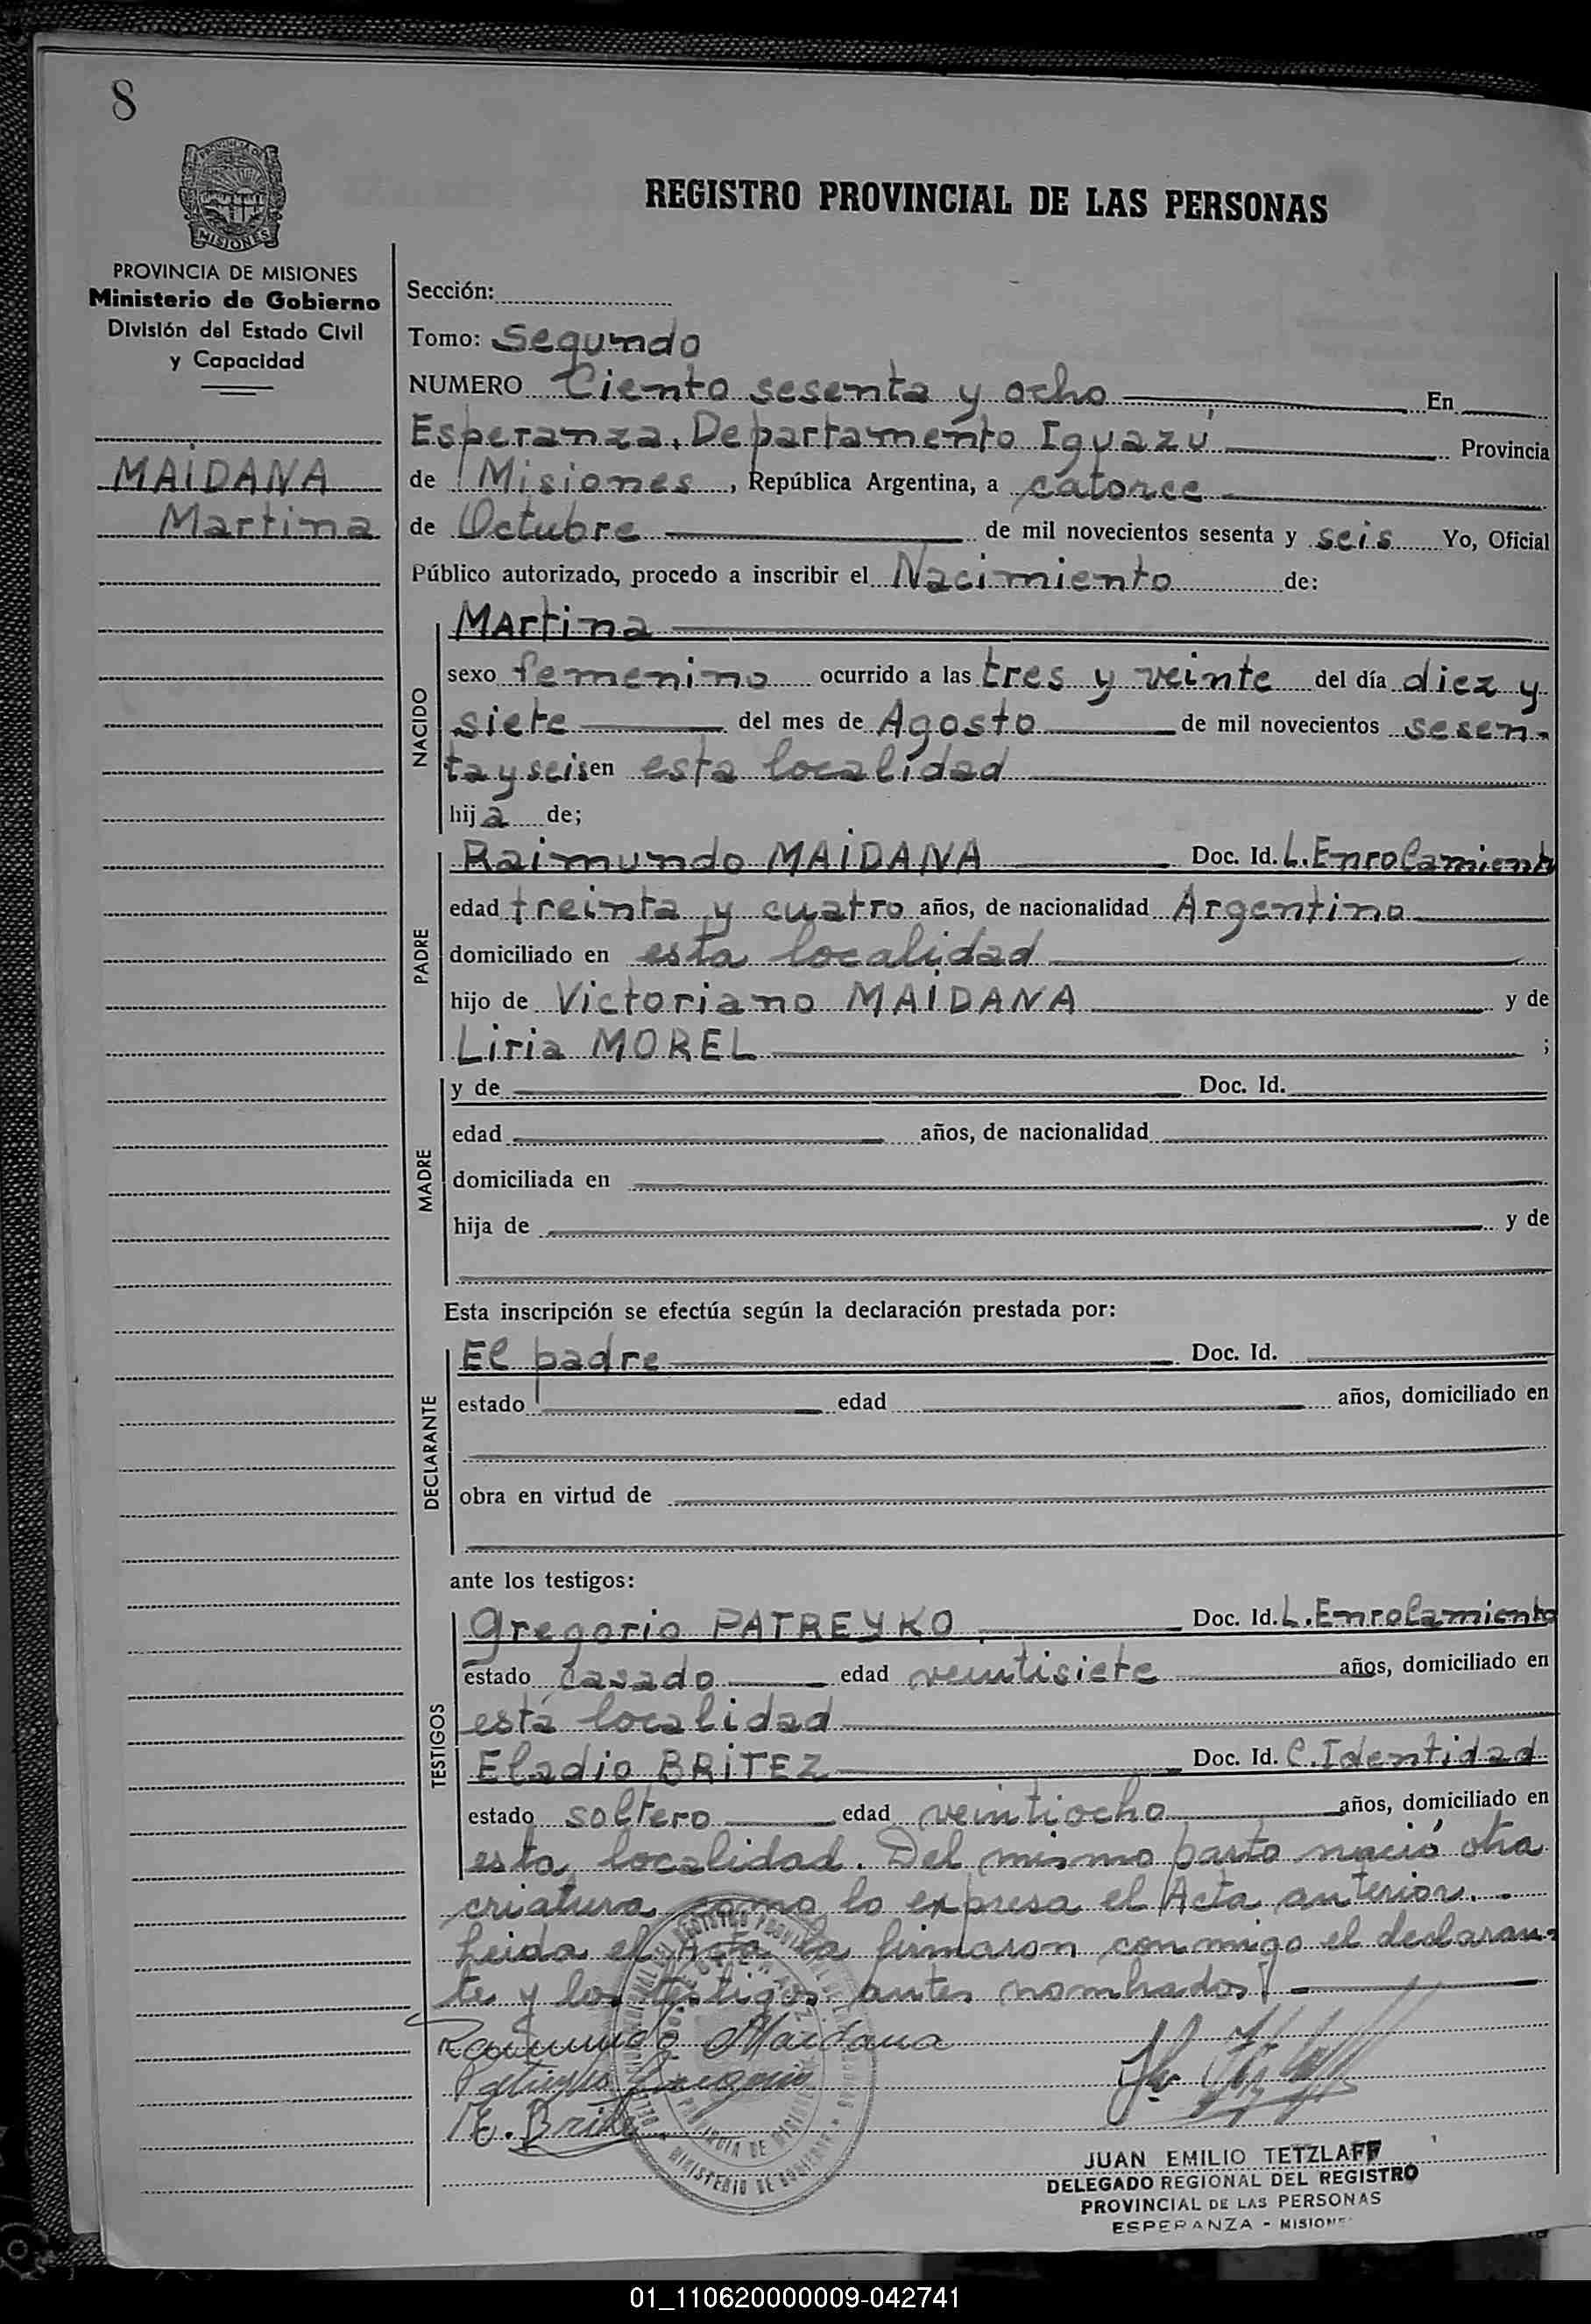 8
PROVINCIA DE
MISIONES
REGISTRO PROVINCIAL DE LAS PERSONAS
PROVINCIA DE MISIONES
Ministerio de Gobierno
División del Estado Civil
y Capacidad
MAIDANA
Martina
Sección:
Tomo: Segundo
NUMERO Ciento sesenta y ocho En
Esperanza, Departamento Iguazú, Provincia
de Misiones, República Argentina, a catorce
de Octubre de mil novecientos sesenta y seis Yo, Oficial
Público autorizado, procedo a inscribir el Nacimiento de:
NACIDO
Martina
sexo femenino ocurrido a las tres y veinte del día diez y
siete del mes de Agosto de mil novecientos sesen-
ta y seis en esta localidad
hija de;
PADRE
Raimundo MAIDANA Doc. Id. L. Enrolamiento
edad treinta y cuatro años, de nacionalidad Argentino
domiciliado en esta localidad
hijo de Victoriano MAIDANA y de
Liria MOREL ;
MADRE
y de Doc. Id.
edad años, de nacionalidad
domiciliada en
hija de y de
Esta inscripción se efectúa según la declaración prestada por:
DECLARANTE
El padre Doc. Id.
estado edad años, domiciliado en
obra en virtud de
ante los testigos:
TESTIGOS
Gregorio PATREYKO Doc. Id. L. Enrolamiento
estado casado edad veintisiete años, domiciliado en
esta localidad
Eladio BRITEZ Doc. Id. C. Identidad
estado soltero edad veintiocho años, domiciliado en
esta localidad. Del mismo parto nació otra
criatura como lo expresa el Acta anterior.
Leida el Acta la firmaron conmigo el declaran-
te y los testigos antes nombrados.
Raimundo Maidana
Gregorio
E. Britez
PROVINCIA DE MISIONES
MINISTERIO DE GOBIERNO
JUAN EMILIO TETZLAFF
DELEGADO REGIONAL DEL REGISTRO
PROVINCIAL DE LAS PERSONAS
ESPERANZA - MISIONES
01_110620000009-042741